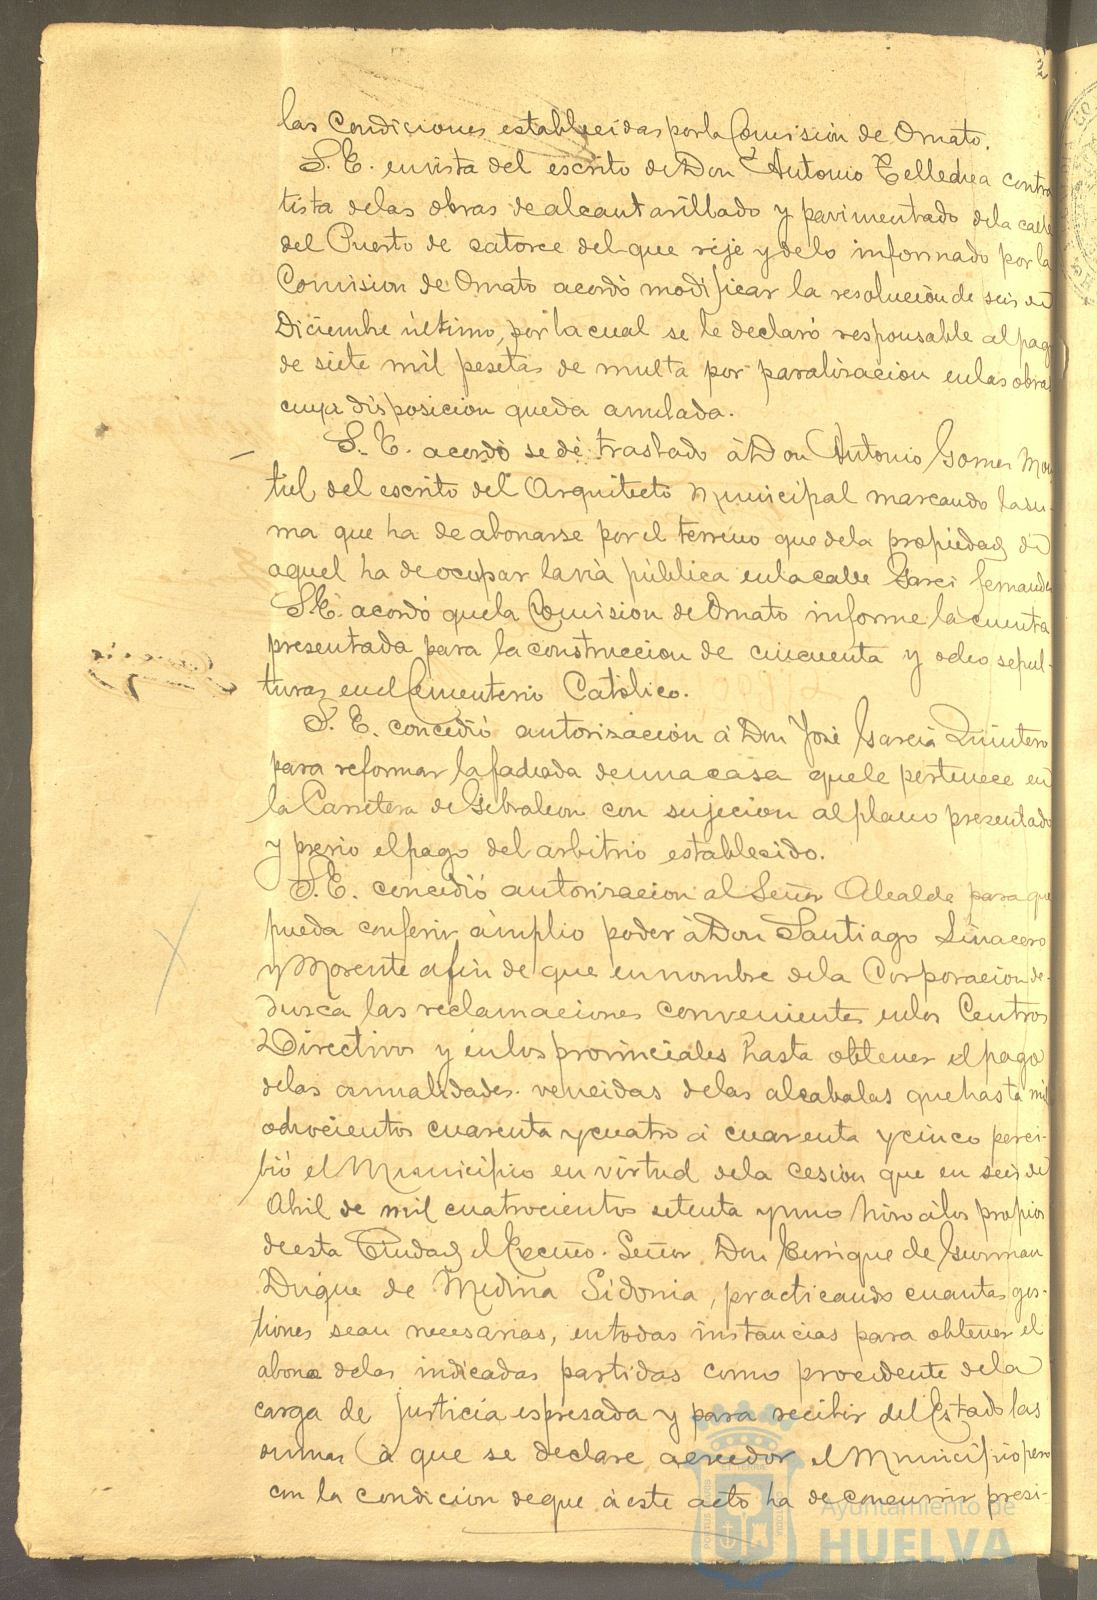 las Condiciones establecidas por la Comision de Ornato.
S. E. en vista del escrito de Don Antonio Telledrea contra
tista de las obras de alcantarillado y pavimentado de la calle
del Puerto de catorce del que rije y de lo informado por la
Comision de Ornato acordó modificar la resolución de seis de
Diciembre último, por la cual se le declaró responsable al pago
de siete mil pesetas de multa por paralizacion en las obras
cuya disposicion queda anulada.
S. E. acordó se dé traslado á Don Antonio Gomez Mon
tiel del escrito del Arquitecto Municipal marcando la su-
ma que ha de abonarse por el terreno que de la propiedad de
aquel ha de ocupar la via pública en la calle Garci Fernandez
S. E. acordó que la Comision de Ornato informe la cuenta
presentada para la construccion de cincuenta y ocho sepul-
turas en el Cementerio Católico.
S. E. concedió autorización á Don José García Quintero
para reformar la fachada de una casa que le pertenece en
la Carretera de Gibraleon con sujecion al plano presentado
y previo el pago del arbitrio establecido.
S. E. concedió autorizacion al Señor Alcalde para que
pueda conferir ámplio poder á Don Santiago Linacero
y Morente afin de que en nombre de la Corporacion de-
duzca las reclamaciones convenientes en los Centros
Directivos y en los provinciales hasta obtener el pago
de las anualidades vencidas de las alcabalas que hasta mil
ochocientos cuarenta y cuatro á cuarenta y cinco perci-
bió el Municipio en virtud de la cesion que en seis de
Abril de mil cuatrocientos setenta y uno hizo á los propios
de esta Ciudad el Excmo. Señor Don Enrique de Guzman
Duque de Medina Sidonia, practicando cuantas ges-
tiones sean necesarias, en todas instancias para obtener el
abono de las indicadas partidas como procedente de la
carga de justicia espresada y para recibir del Estado las
sumas á que se declare acreedor el Municipio pero
con la condicion de que á este acto ha de concurrir presi-
Ayuntamiento de
HUELVA